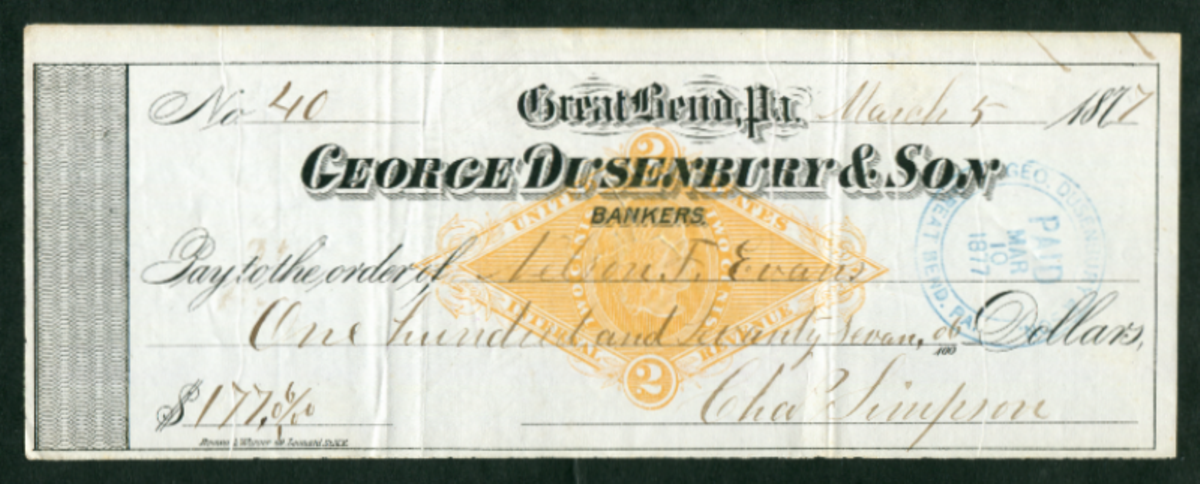 No 40 Great Bend, Pa. March 5 1877
GEORGE DUSENBURY & SON
BANKERS.
Pay to the order of Nelson F. Evans
One hundred and Seventy Seven, 06/100 Dollars,
$177,06/100
Cha Simpson
2
UNITED STATES
TWO CENTS
INTERNAL REVENUE
2
GEO. DUSENBURY
GREAT BEND, PA.
PAID
MAR
10
1877